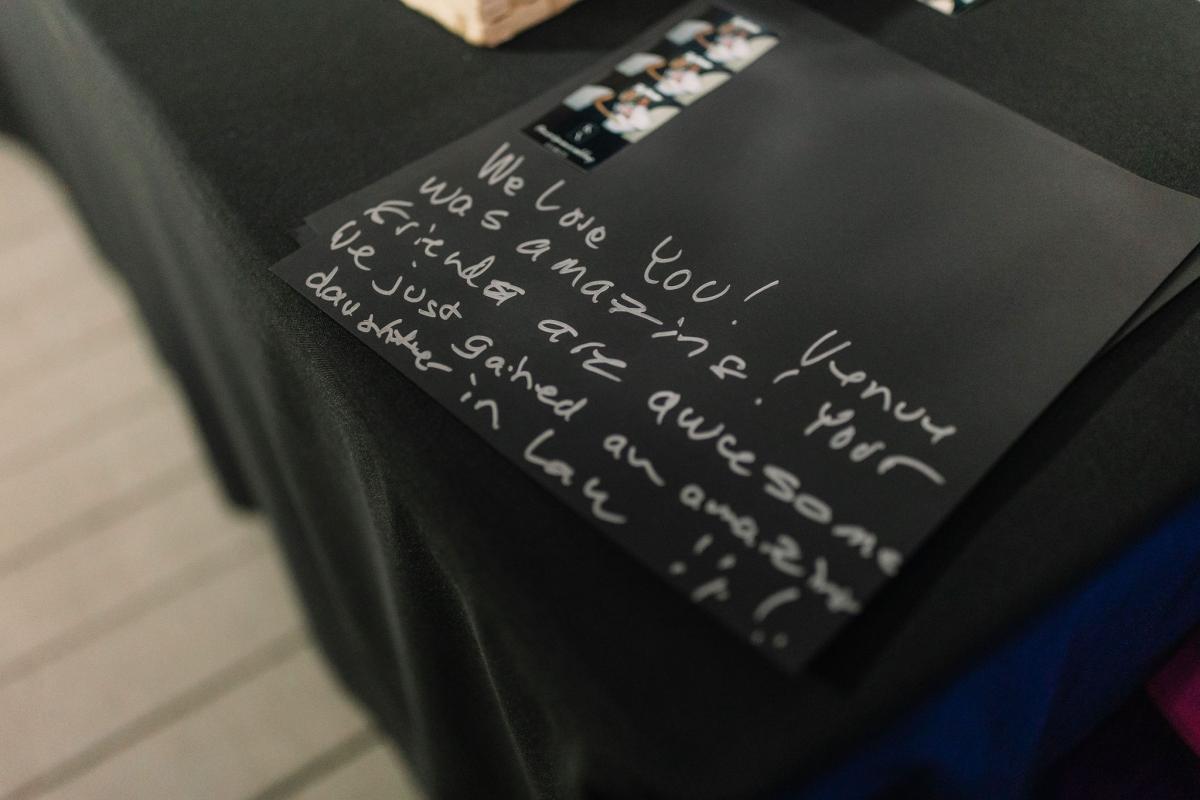 We Love You! Venue
was amazing! Your
Friends are awesome
We just gained an amazing
daughter in Law !!!